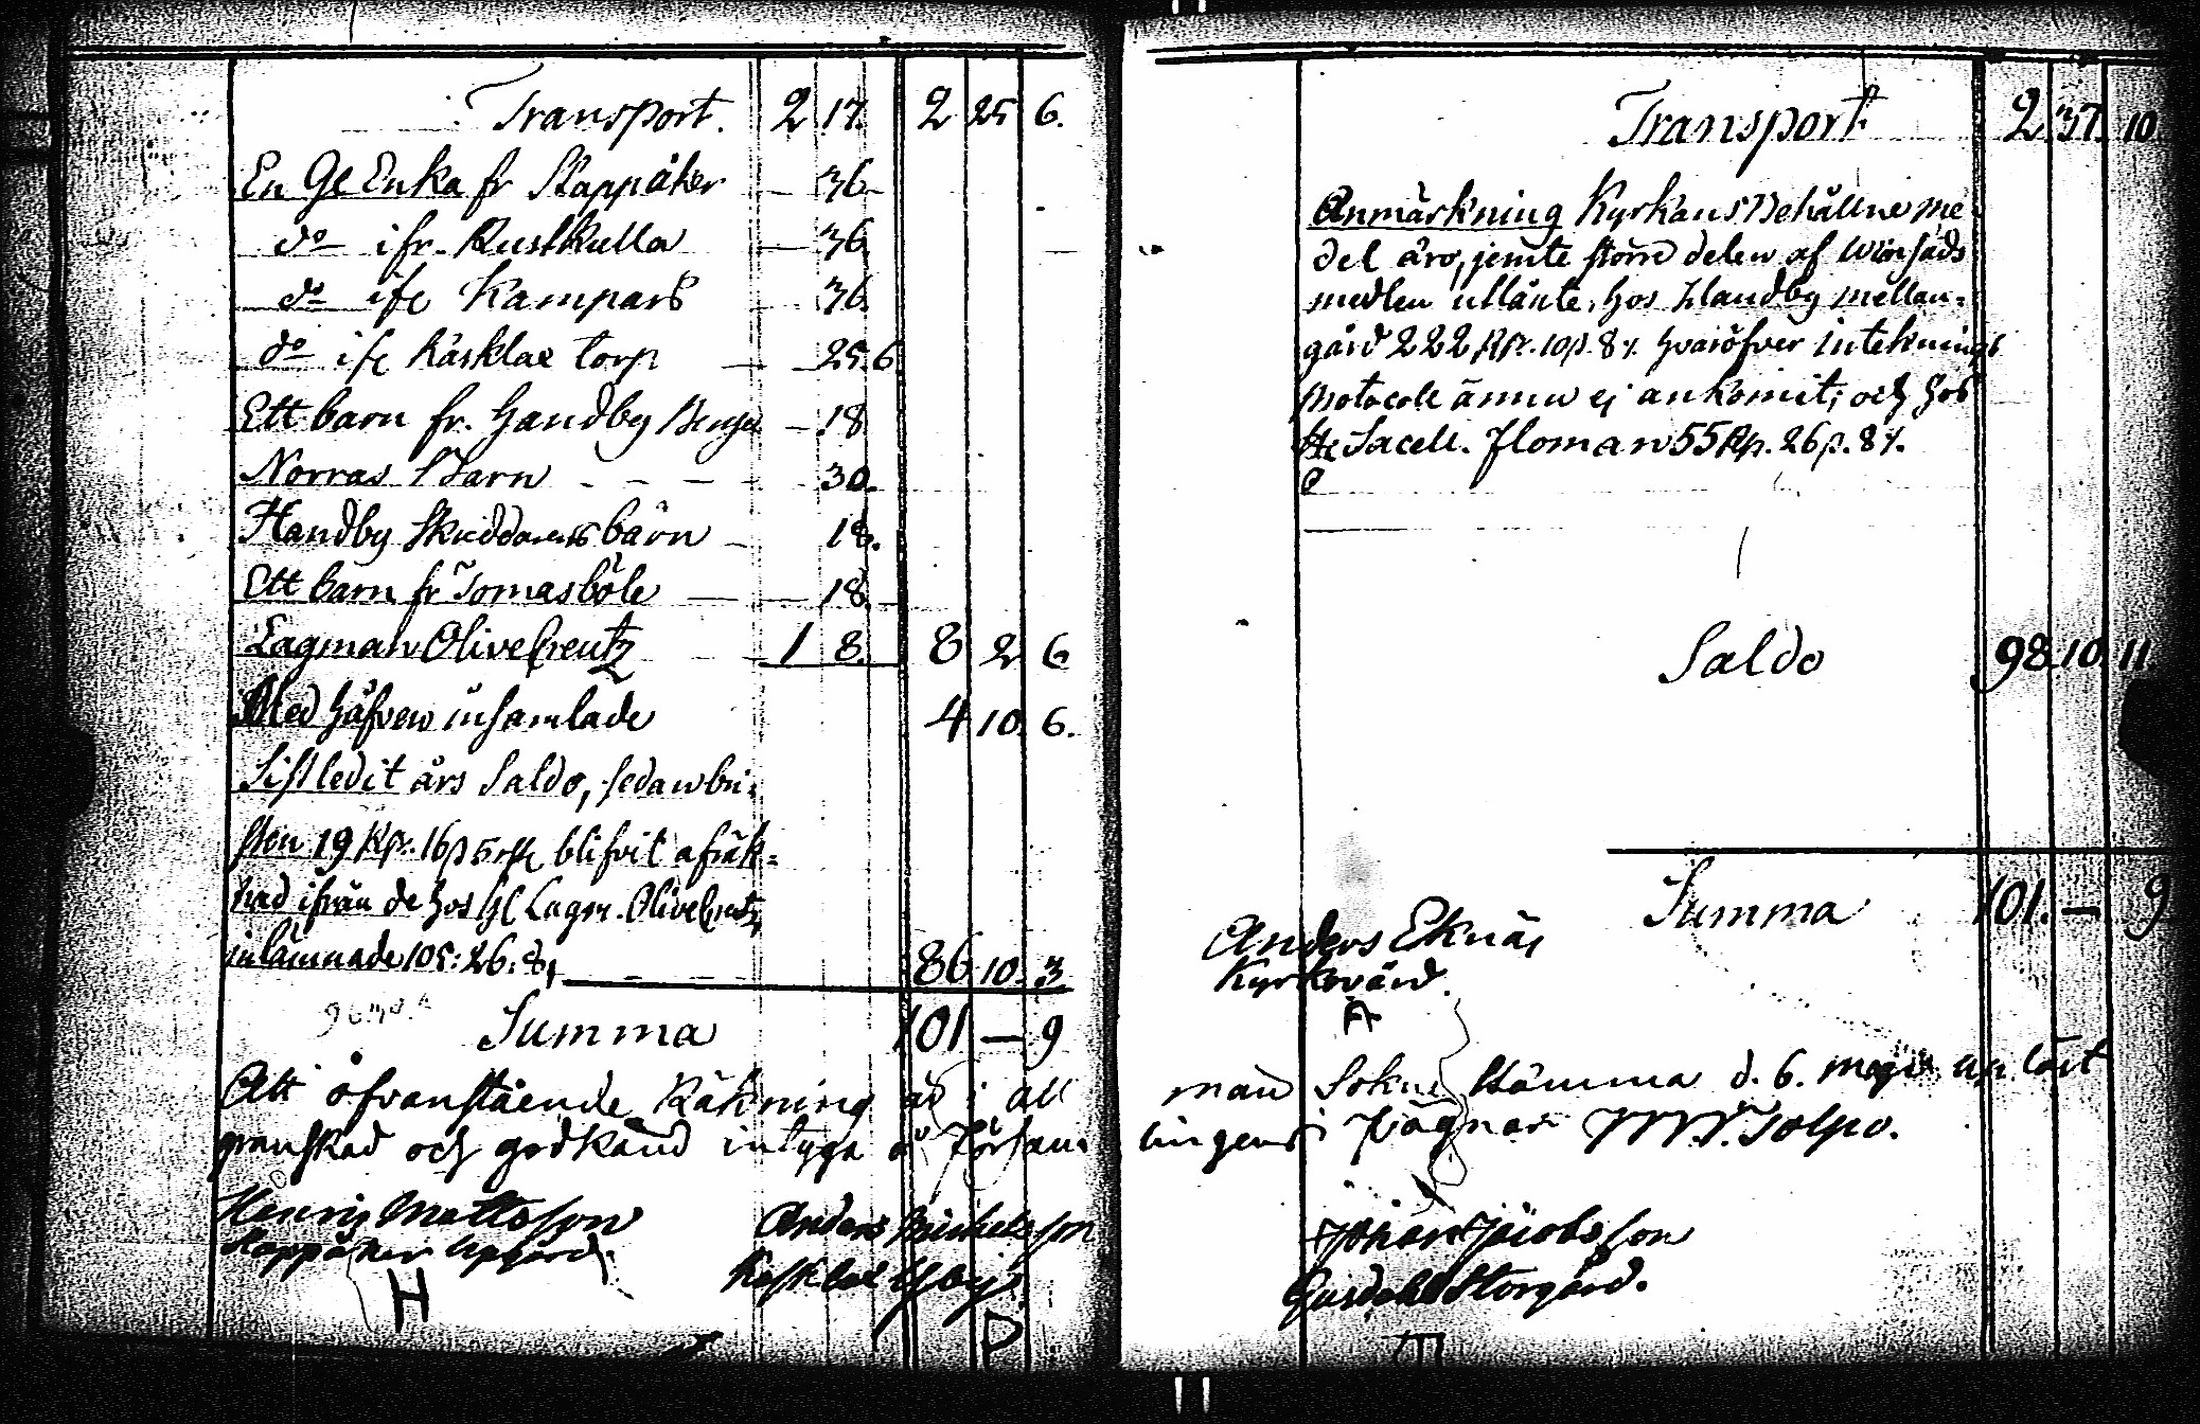 Transport. 2 17. 2 25 6.
En Gl Enka fr Slappåker — 36
do ifr. Rustkulla — 36
do ifr Kampars 36
do ifr Räsklax torp — 25. 6
Ett barn fr. Handby — 18
Norras Barn - - - 30.
Handby Skräddarens barn — 18.
Ett barn fr Tomasböle — 18.
Lagman OliveCreutz 1 8. 8 2 6
Med håfven insamlade 4 10. 6.
Sistledit års Saldo, sedan bri-
sten 19 Rp. 16 p 5 blifvit afräk-
nad ifrån de hos Lagm. OliveCreutz
inlämnade 105: 26: 8, 86 10. 3
Summa 101 — 9
Att ofvanstående Räkning är i all
granskad och godkänd intyga å Försam-
Henric Mattsson
Slappåker Uppgård.
H
Anders Michelsson
Räfsklax Ysby
D
Transport 2. 37. 10
Anmärkning Kyrkans Behållne me-
del äro, jemte större delen af Winsäds
medlen utlånte, hos Handby mellan-
gård 222 Rp. 10 p. 8 hvaröfver intecknings
Protocoll ännu ej ankommit; och hos
Hr Sacell. Floman 55 Rp. 26 p. 8
Saldo 98. 10. 11
Summa 101. — 9
Anders Eknäs
Kyrkovärd.
A
man Sokne Stämma d. 6. Maji up läst
lingens Vägnar Tolpo.
Johan Jacobsson
Storgård.